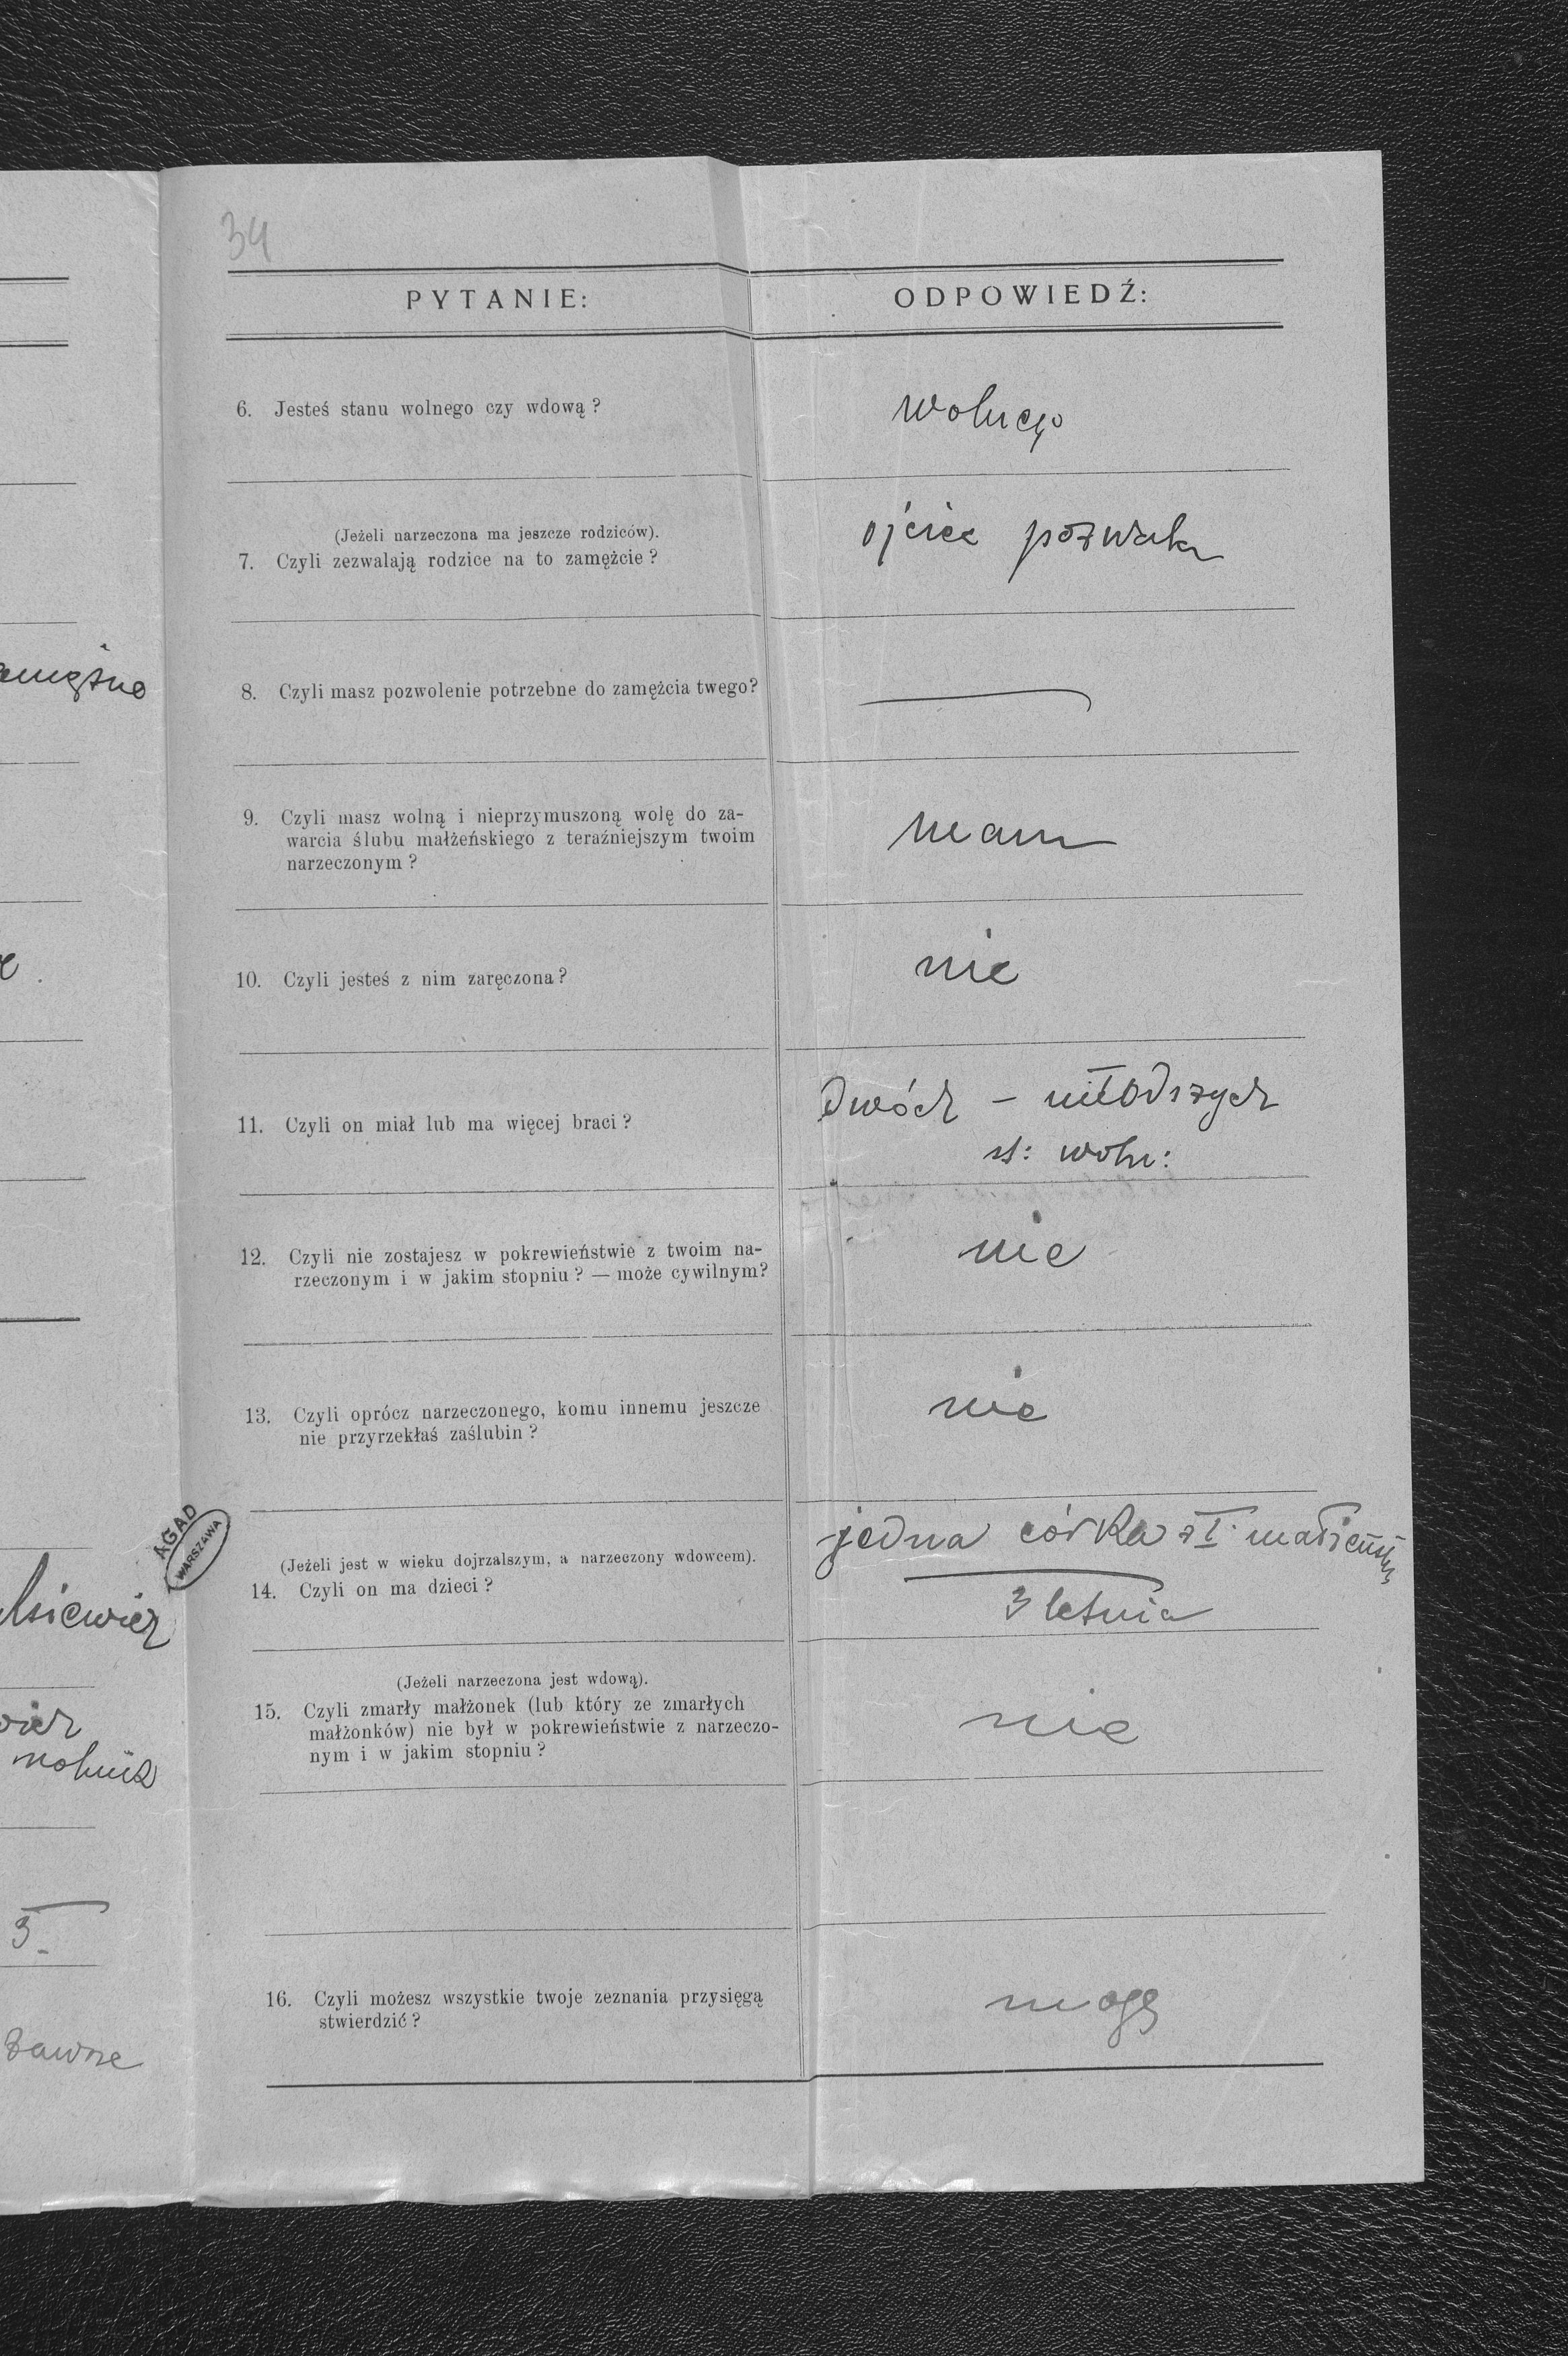 34
PYTANIE:
ODPOWIEDŹ:
6. Jesteś stanu wolnego czy wdową?
wolnego
(Jeżeli narzeczona ma jeszcze rodziców).
7. Czyli zezwalają rodzice na to zamężcie?
ojciec pozwala
8. Czyli masz pozwolenie potrzebne do zamężcia twego?
—
9. Czyli masz wolną i nieprzymuszoną wolę do za-
warcia ślubu małżeńskiego z teraźniejszym twoim
narzeczonym?
mam
10. Czyli jesteś z nim zaręczona?
nie
11. Czyli on miał lub ma więcej braci?
dwóch – młodszych
st: woln:
12. Czyli nie zostajesz w pokrewieństwie z twoim na-
rzeczonym i w jakim stopniu? — może cywilnym?
nie
13. Czyli oprócz narzeczonego, komu innemu jeszcze
nie przyrzekłaś zaślubin?
nie
(Jeżeli jest w wieku dojrzalszym, a narzeczony wdowcem).
14. Czyli on ma dzieci?
jedna córka z I.
3 letnia
(Jeżeli narzeczona jest wdową).
15. Czyli zmarły małżonek (lub który ze zmarłych
małżonków) nie był w pokrewieństwie z narzeczo-
nym i w jakim stopniu?
nie
16. Czyli możesz wszystkie twoje zeznania przysięgą
stwierdzić?
mogę
AGAD
WARSZAWA